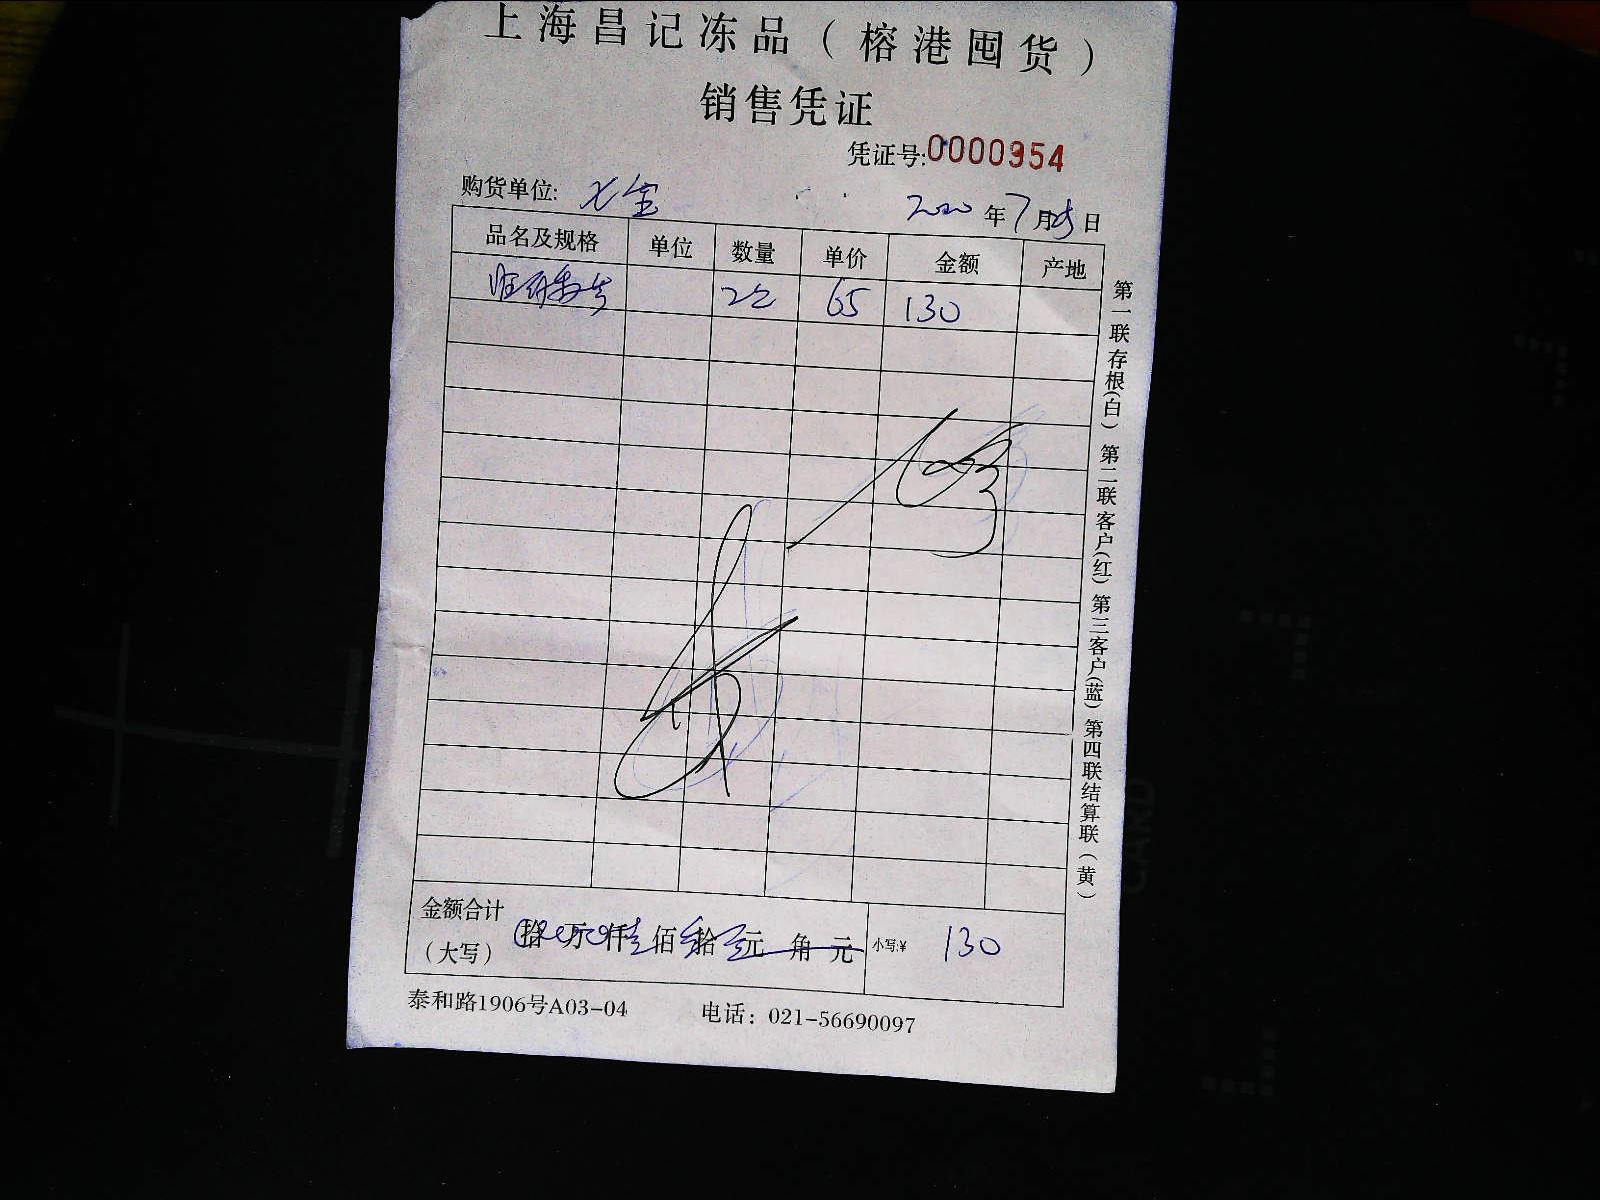 上海昌记冻品（榕港囤货）
销售凭证
凭证号:0000954
购货单位: 七宝
2020年7月25日
品名及规格 单位 数量 单价 金额 产地
2 65 130
金额合计 拾万仟壹佰叁拾元角元 小写:¥ 130
（大写）
泰和路1906号A03-04 电话：021-56690097
第一联存根(白) 第二联客户(红) 第三客户(蓝) 第四联结算联(黄)